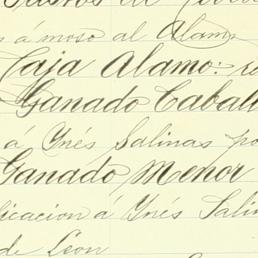 á moso al Alamo
Caja Alamo:
Ganado Caball
á Ynés Salinas po
Ganado Menor
licacion á Ynés Salin
de Leon